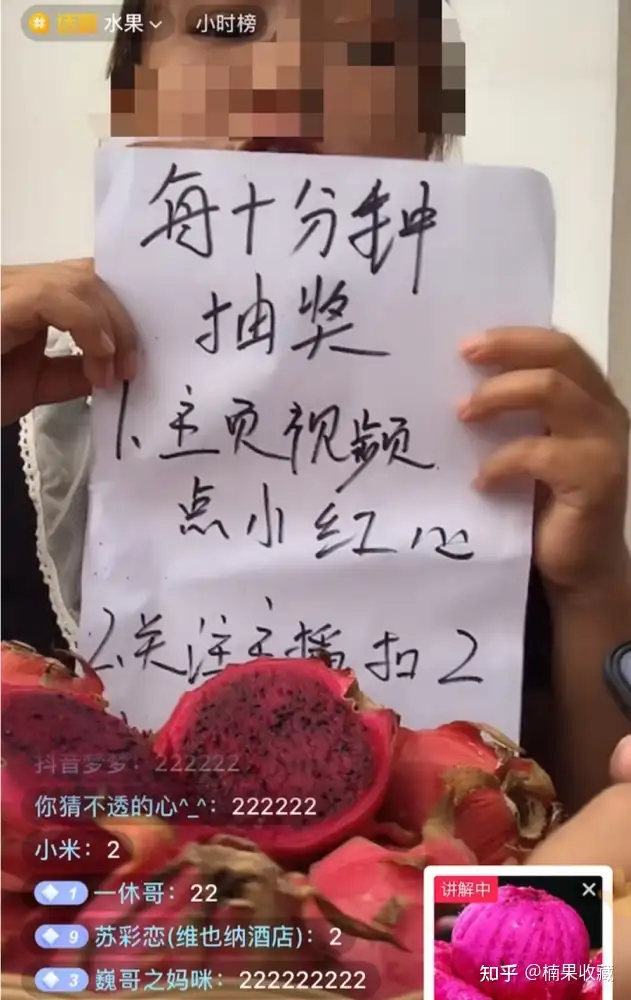 水果
小时榜
每十分钟
抽奖
1、主页视频
点小红心
2、关注主播扣2
抖音梦梦：222222
你猜不透的心^_^：222222
小米：2
1 一休哥：22
9 苏彩恋(维也纳酒店)：2
3 巍哥之妈咪：222222222
讲解中
知乎 @楠果收藏